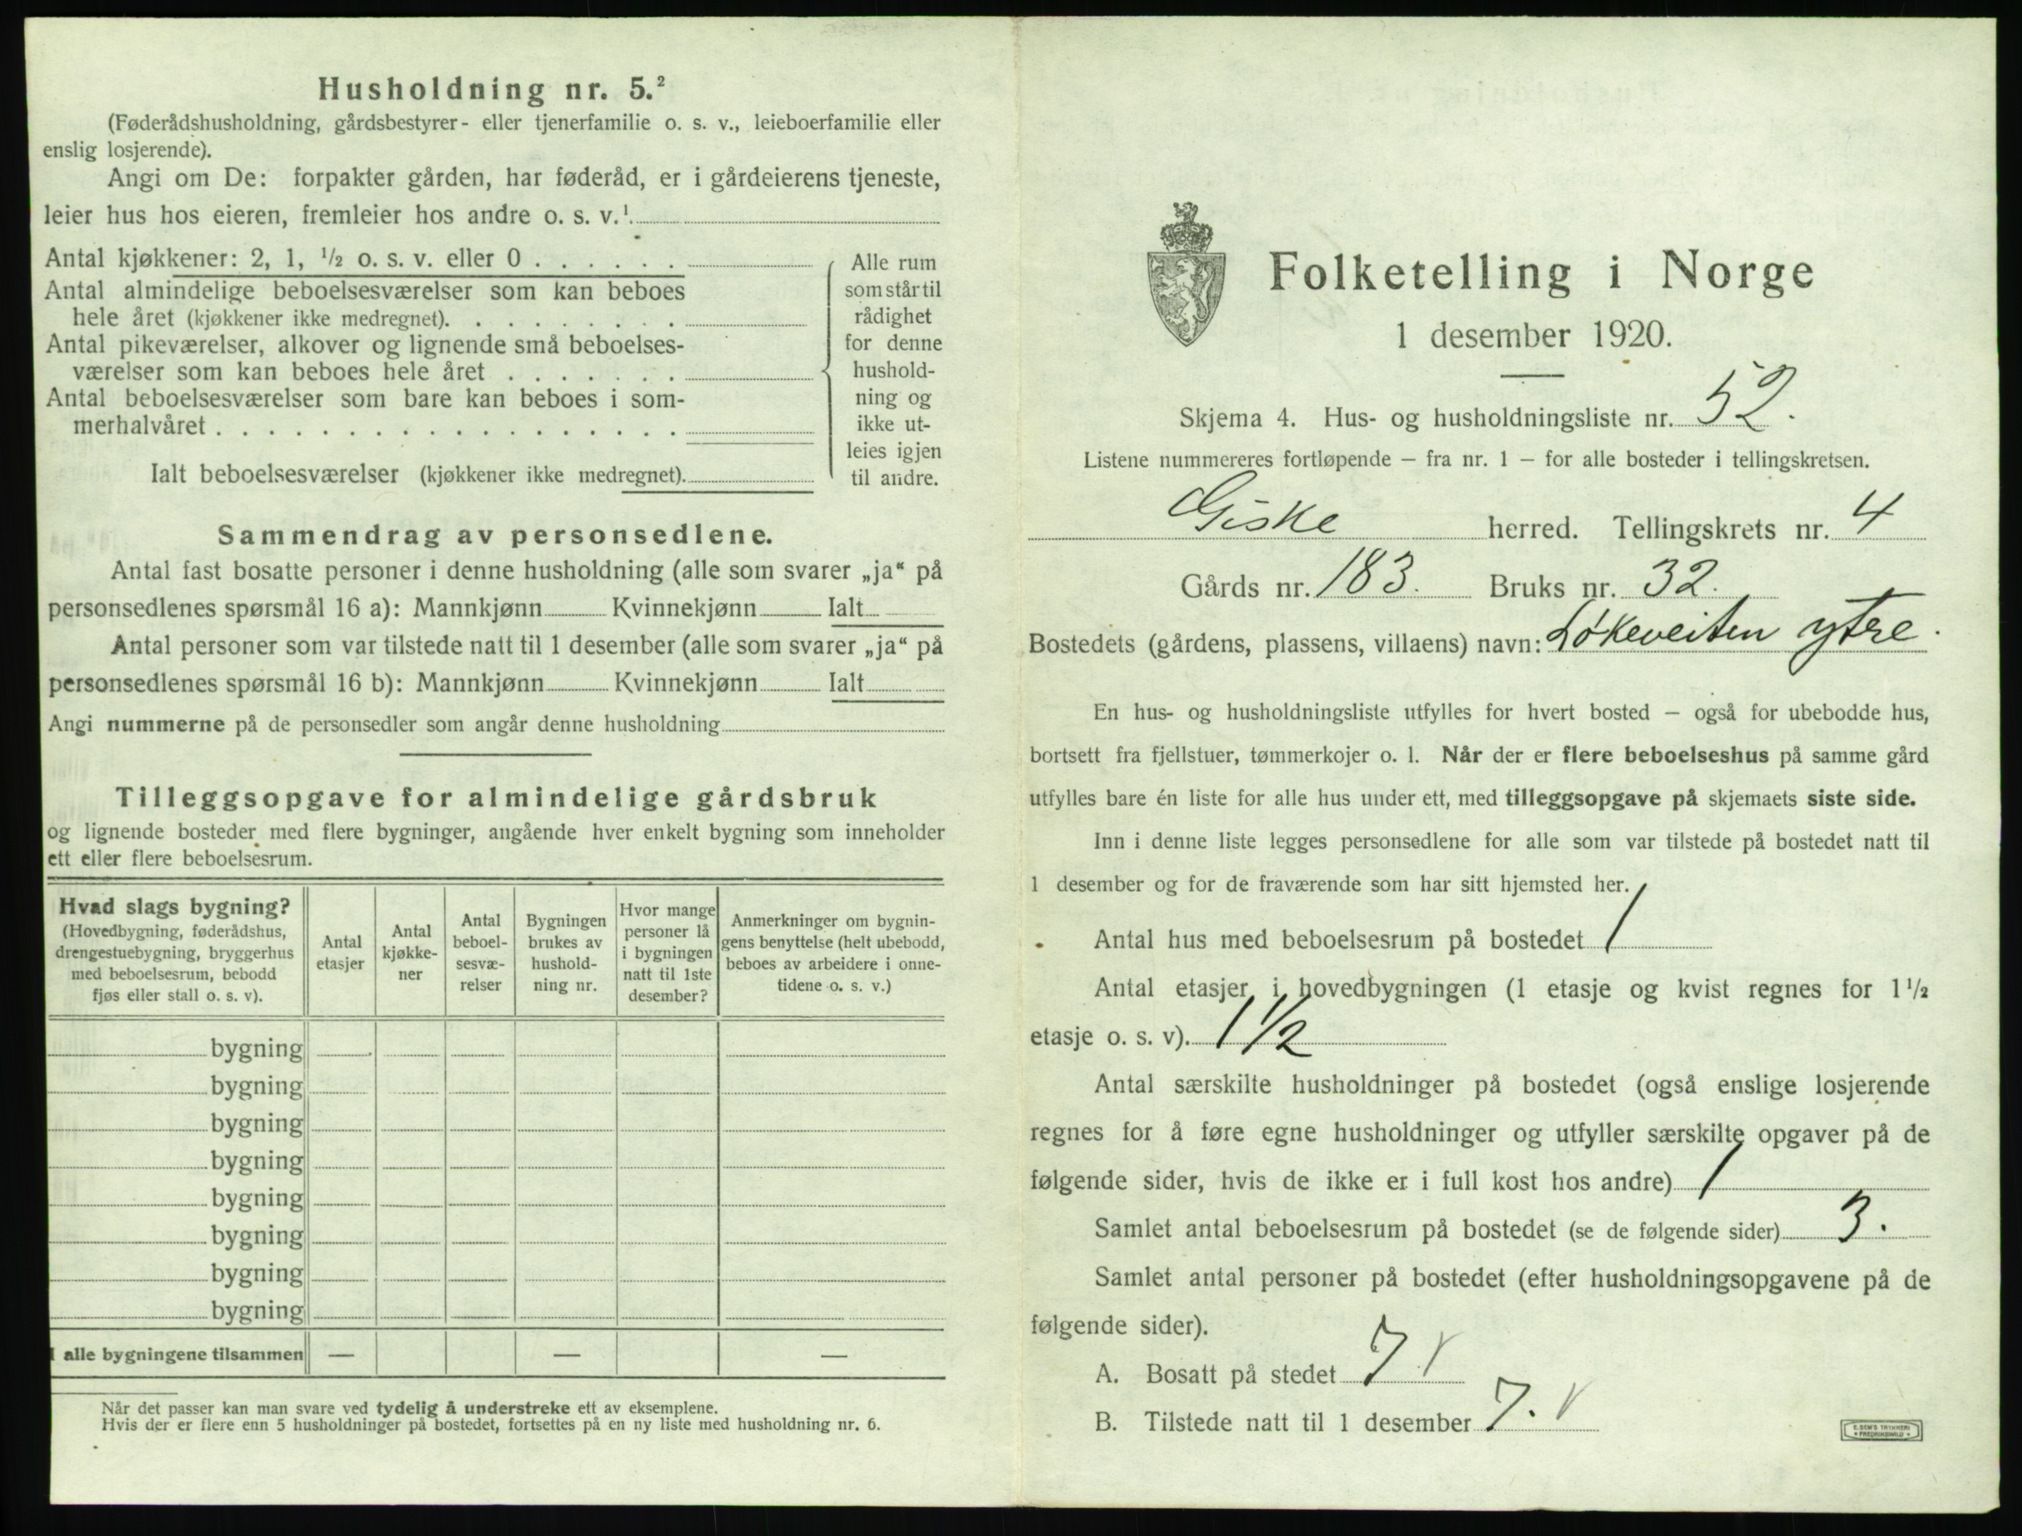 Husholdning nr. 5.²
(Føderådshusholdning, gårdsbestyrer- eller tjenerfamilie o. s. v., leieboerfamilie eller
enslig losjerende).
Angi om De: forpakter gården, har føderåd, er i gårdeierens tjeneste,
leier hus hos eieren, fremleier hos andre o. s. v.¹
Antal kjøkkener: 2, 1, ½ o. s. v. eller 0 . . . . . .
Antal almindelige beboelsesværelser som kan beboes
hele året (kjøkkener ikke medregnet). . . . . . . . .
Antal pikeværelser, alkover og lignende små beboelses-
værelser som kan beboes hele året . . . . . . .
Antal beboelsesværelser som bare kan beboes i som-
merhalvåret . . . . . . . . . . . . . . . . . .
Ialt beboelsesværelser (kjøkkener ikke medregnet).
Alle rum
som står til
rådighet
for denne
hushold-
ning og
ikke ut-
leies igjen
til andre.
Sammendrag av personsedlene.
Antal fast bosatte personer i denne husholdning (alle som svarer „ja“ på
personsedlenes spørsmål 16 a): Mannkjønn Kvinnekjønn Ialt
Antal personer som var tilstede natt til 1 desember (alle som svarer „ja“ på
personsedlenes spørsmål 16 b): Mannkjønn Kvinnekjønn Ialt
Angi nummerne på de personsedler som angår denne husholdning
Tilleggsopgave for almindelige gårdsbruk
og lignende bosteder med flere bygninger, angående hver enkelt bygning som inneholder
ett eller flere beboelsesrum.
Hvad slags bygning?
(Hovedbygning, føderådshus,
drengestuebygning, bryggerhus
med beboelsesrum, bebodd
fjøs eller stall o. s. v).
Antal
etasjer
Antal
kjøkke-
ner
Antal
beboel-
sesvæ-
relser
Bygningen
brukes av
hushold-
ning nr.
Hvor mange
personer lå
i bygningen
natt til 1ste
desember?
Anmerkninger om bygnin-
gens benyttelse (helt ubebodd,
beboes av arbeidere i onne-
tidene o. s. v.)
bygning
bygning
bygning
bygning
bygning
bygning
bygning
bygning
I alle bygningene tilsammen — — —
Når det passer kan man svare ved tydelig å understreke ett av eksemplene.
Hvis der er flere enn 5 husholdninger på bostedet, fortsettes på en ny liste med husholdning nr. 6.
Folketelling i Norge
1 desember 1920.
Skjema 4. Hus- og husholdningsliste nr. 52.
Listene nummereres fortløpende — fra nr. 1 — for alle bosteder i tellingskretsen.
Giske herred. Tellingskrets nr. 4
Gårds nr. 183. Bruks nr. 32.
Bostedets (gårdens, plassens, villaens) navn: Løkeveiten ytre.
En hus- og husholdningsliste utfylles for hvert bosted — også for ubebodde hus,
bortsett fra fjellstuer, tømmerkojer o. l. Når der er flere beboelseshus på samme gård
utfylles bare én liste for alle hus under ett, med tilleggsopgave på skjemaets siste side.
Inn i denne liste legges personsedlene for alle som var tilstede på bostedet natt til
1 desember og for de fraværende som har sitt hjemsted her.
Antal hus med beboelsesrum på bostedet 1
Antal etasjer i hovedbygningen (1 etasje og kvist regnes for 1 ½
etasje o. s. v). 1 ½
Antal særskilte husholdninger på bostedet (også enslige losjerende
regnes for å føre egne husholdninger og utfyller særskilte opgaver på de
følgende sider, hvis de ikke er i full kost hos andre) 1
Samlet antal beboelsesrum på bostedet (se de følgende sider) 3.
Samlet antal personer på bostedet (efter husholdningsopgavene på de
følgende sider).
A. Bosatt på stedet 7 v
B. Tilstede natt til 1 desember 7. v
E. SEM'S TRYKKERI
• FREDRIKSHALD •